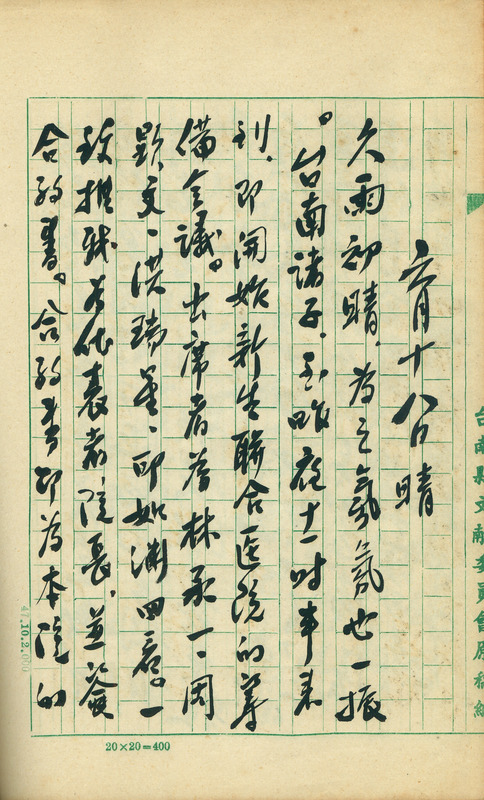 六月十八日 晴
久雨初晴、為之氣氛也一振
。台南諸子、至昨夜十一時半來
到、即開始新生聯合医院的筹
備会議。出席者為林承一、周
顕文、洪瑞、邱如渊四君。一
致推我为代表者院長、並簽
合約書。合約書即為本院的
台南縣文献委員會原稿紙
10.2.
20×20=400